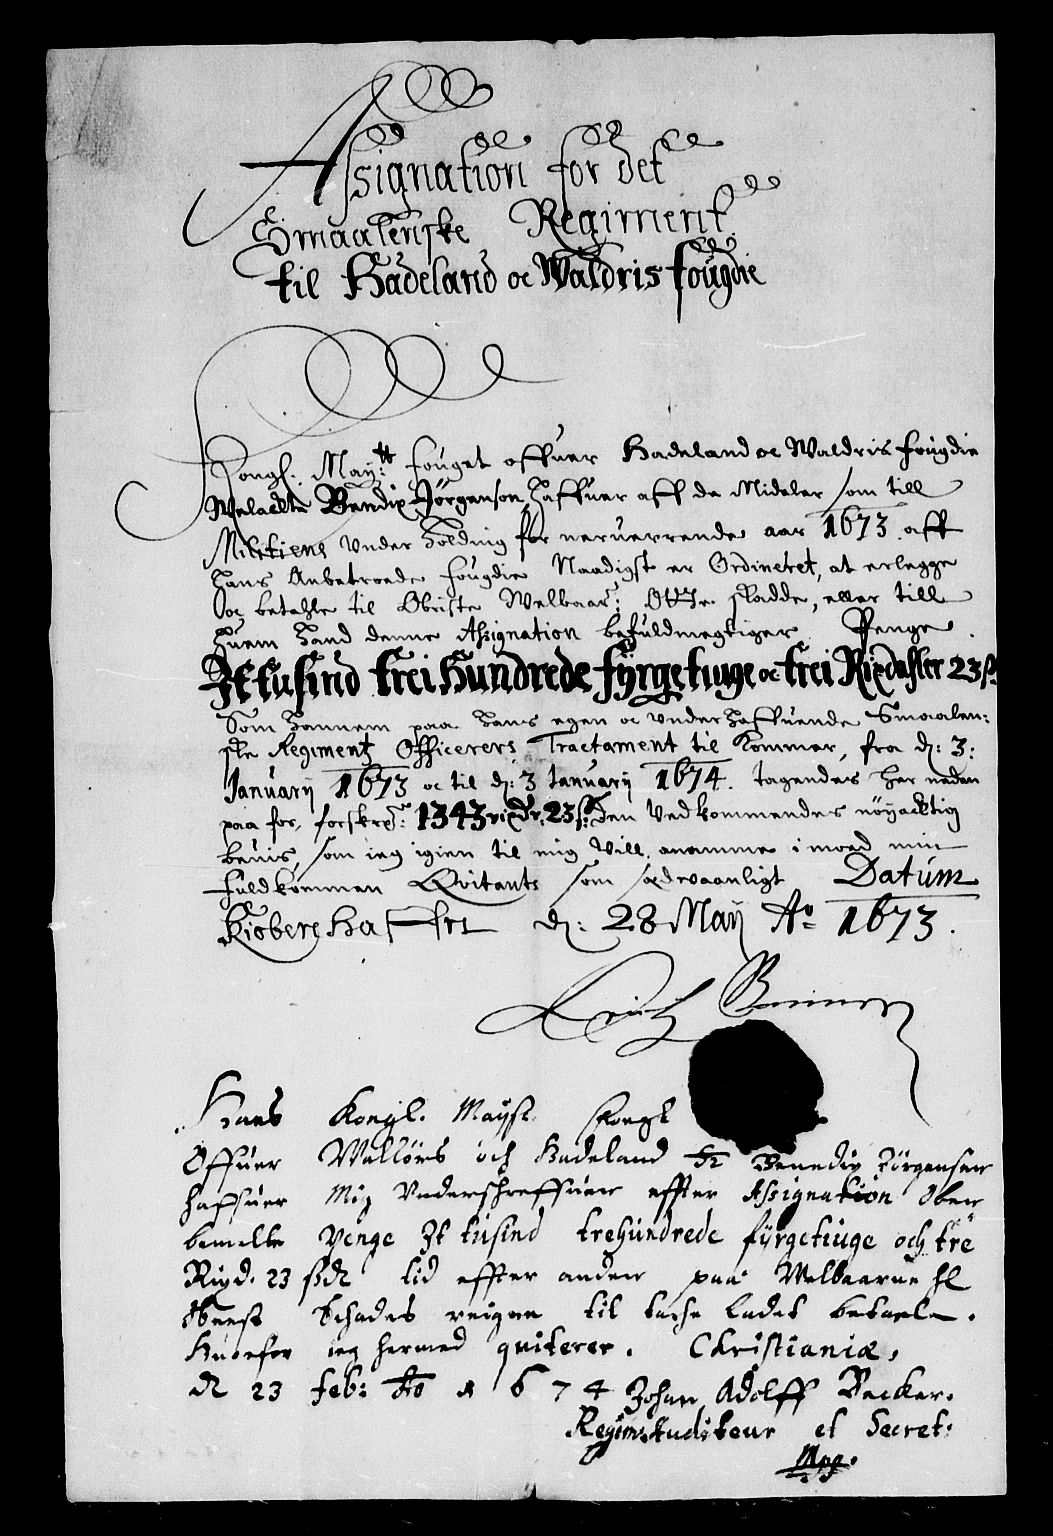 Assignation for det
Smaalenske Regiment
til Hadeland oc Waldris fougdie
Kongl: May:tts fouget offuer Hadeland oc Waldris fougdie
Welacte Bendix Jörgenson, haffuer aff de Mideler som till
Militiens Underholding for neruerrende aar 1673. aff
hans Anbetroede fougdie Naadigst er Ordineret, at erlegge
oc betahle til Obriste Welbaar: Otte skadde, eller till
huem hand denne Assignation befuldmegtiger Penge
It tusind trei Hundrede fÿrgetiuge oc trei Rixdahler 23 ß
Som hannem paa hans egen oc underhaffuende Smaalen:
ske Regiment Officerers Tractament til Kommer, fra d: 3:
Januarij 1673 oc til d: 3 January 1674. tagendes her neden
paa for, forskrø: 1343 rixdr. 23 ß. den Vedkommendes nöyacktig
beuis, som ieg igien til mig Vill anamme i moed min
fuldkommen Qvitants som sædvaanligt Datum
Kiobenhaffn d: 28 Maij Ao 1673.
Hans Kongl. Mayst. fougt
Offuer Walldris och Hadeland Hr Benedix Jörgensen
haffuer Mig Underschreffuen effter Assignation Oben
bemelte penge It tusind trehundrede fÿrgetiuge och tre
Rixd. 23 ß dr tid effter anden paa Welbaarne Hl
Oberst Schades veigne til tache ladet betaele.
Huorfor ieg hermed quiterer. Christiania,
dl 23 feb: Ao 1674 Johan Adolff Becker.
Regim: Auditeur et Secret:
Mpp.